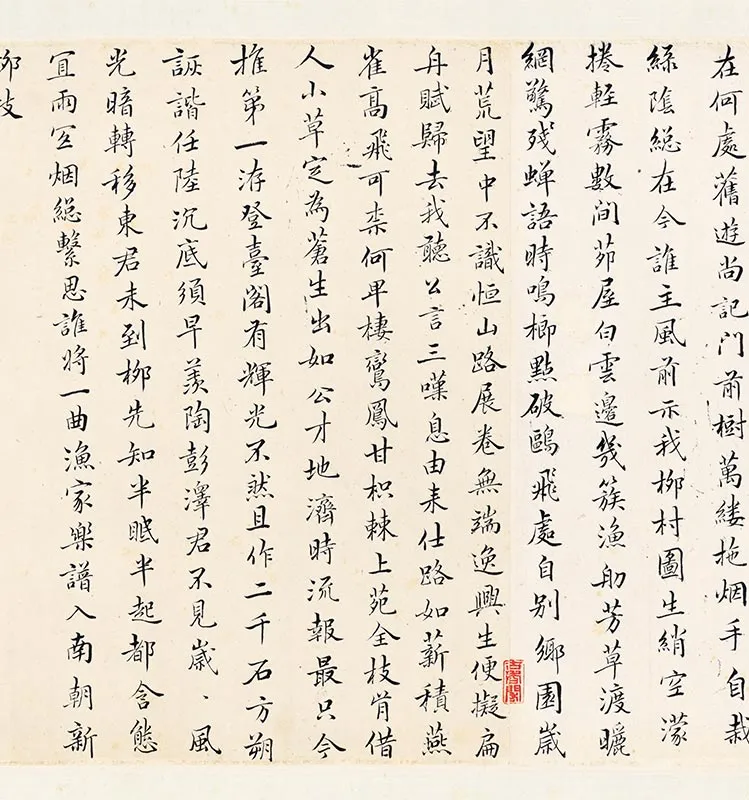 在何處舊遊尚記門前樹萬縷拖烟手自栽
綠陰總在今誰主風前示我柳村圖生綃空濛
捲輕霧數間茆屋白雲邊幾簇漁舠芳草渡曬
網驚殘蟬語時鳴榔點破鷗飛處自別鄉園歲
月荒望中不識恒山路展卷無端逸興生便擬扁
舟賦歸去我聽公言三嘆息由来仕路如薪積燕
雀高飛可柰何卑棲鸞鳳甘枳棘上苑全枝肯借
人小草定為蒼生出如公才地濟時流報最只今
推第一洊登臺閣有輝光不然且作二千石方朔
詼諧任陸沉底須早羨陶彭澤君不見歲、風
光暗轉移東君未到柳先知半眠半起都含態
宜雨宜烟總繫思誰將一曲漁家樂譜入南朝新
柳枝